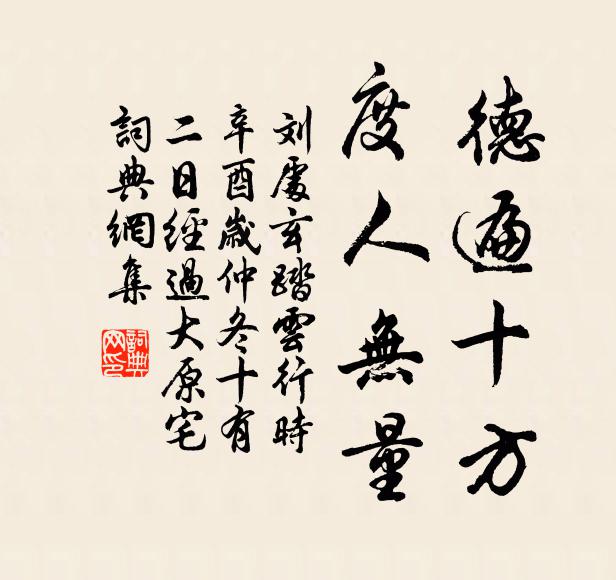 德遍十方
度人無量
刘處玄踏雲行時
辛酉歲仲冬十有
二日經過大原宅
詞典網集
詞典
网印